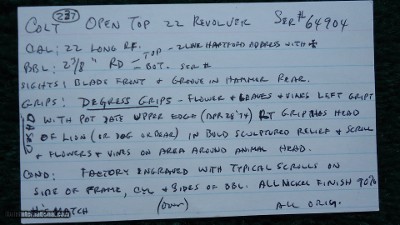 237
COLT OPEN TOP 22 REVOLVER SER# 64904
CAL: 22 LONG R.F. - TOP - 2 LINE HARTFORD ADDRESS WITH
BBL: 2 3/8" RD - BOT. SER #
SIGHTS: BLADE FRONT & GROOVE IN HAMMER REAR.
GRIPS: DEGRESS GRIPS - FLOWER & LEAVES & VINES LEFT GRIPT
WITH PAT DATE UPPER EDGE (APR 28 '74) RT GRIP HAS HEAD
OF LION (OR DOG OR BEAR) IN BOLD SCULPTURED RELIEF & SCROLL
& FLOWERS & VINES ON AREA AROUND ANIMAL HEAD.
COND: FACTORY ENGRAVED WITH TYPICAL SCROLLS ON
SIDE OF FRAME, CYL & SIDES OF BBL. ALL NICKEL FINISH 90%
#'S MATCH (OVER) ALL ORIG.